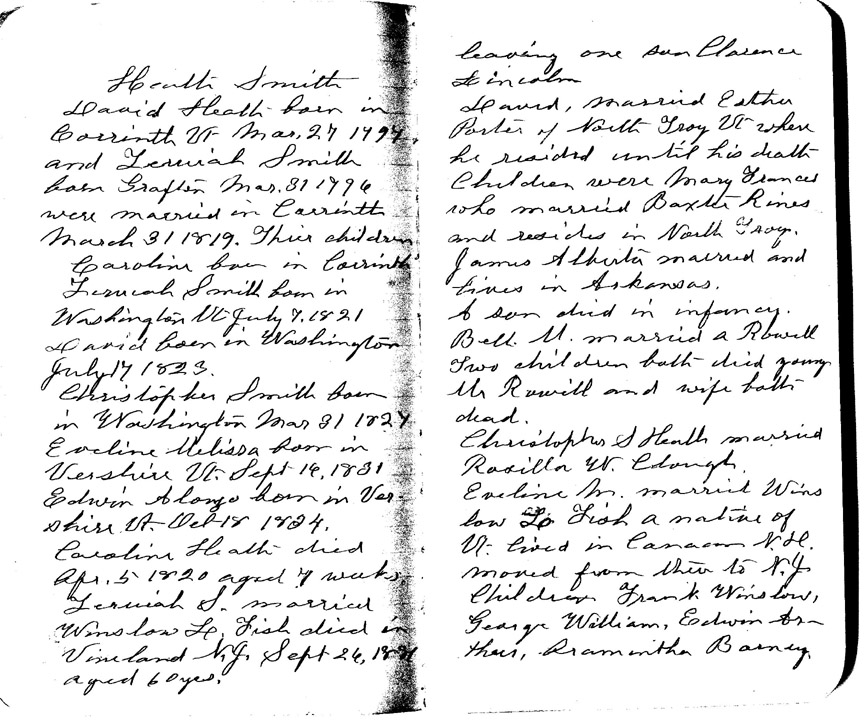 Heath Smith
David Heath born in
Corrinth Vt Mar. 27 1797
and Zeruiah Smith
born Grafton Mar. 31 1796
were married in Corrinth
March 31 1819. Thier children
Caroline born in Corrinth
Zeruiah Smith born in
Washington Vt July 7, 1821
David born in Washington
July 17 1823.
Christopher Smith born
in Washington Mar 31 1827
Eveline Melissa born in
Vershire Vt. Sept 16, 1831
Edwin Alonzo born in Ver-
shire Vt. Oct 18 1834.
Caroline Heath died
Apr. 5 1820 aged 7 weeks.
Zeruiah S. married
Winslow L. Fish died in
Vineland N.J. Sept 26,
aged 60 yrs.
leaving one son Clarence
Lincoln
David, married Esther
Porter of North Troy Vt where
he resided until his death
Children were Mary Frances
who married Baxter Rines
and resides in North Troy.
James Alberto married and
lives in Arkansas.
A son died in infancy.
Bell. M. married a Rowell
Two children both died young
Mr Rowell and wife both
dead.
Christopher S Heath married
Rosilla W. Clough.
Eveline M. married Wins
low L. Fish a native of
Vt. lived in Canaan N.H.
moved from there to N.J.
Children Frank Winslow,
George William, Edwin Ar-
thur, Aramintha Barney